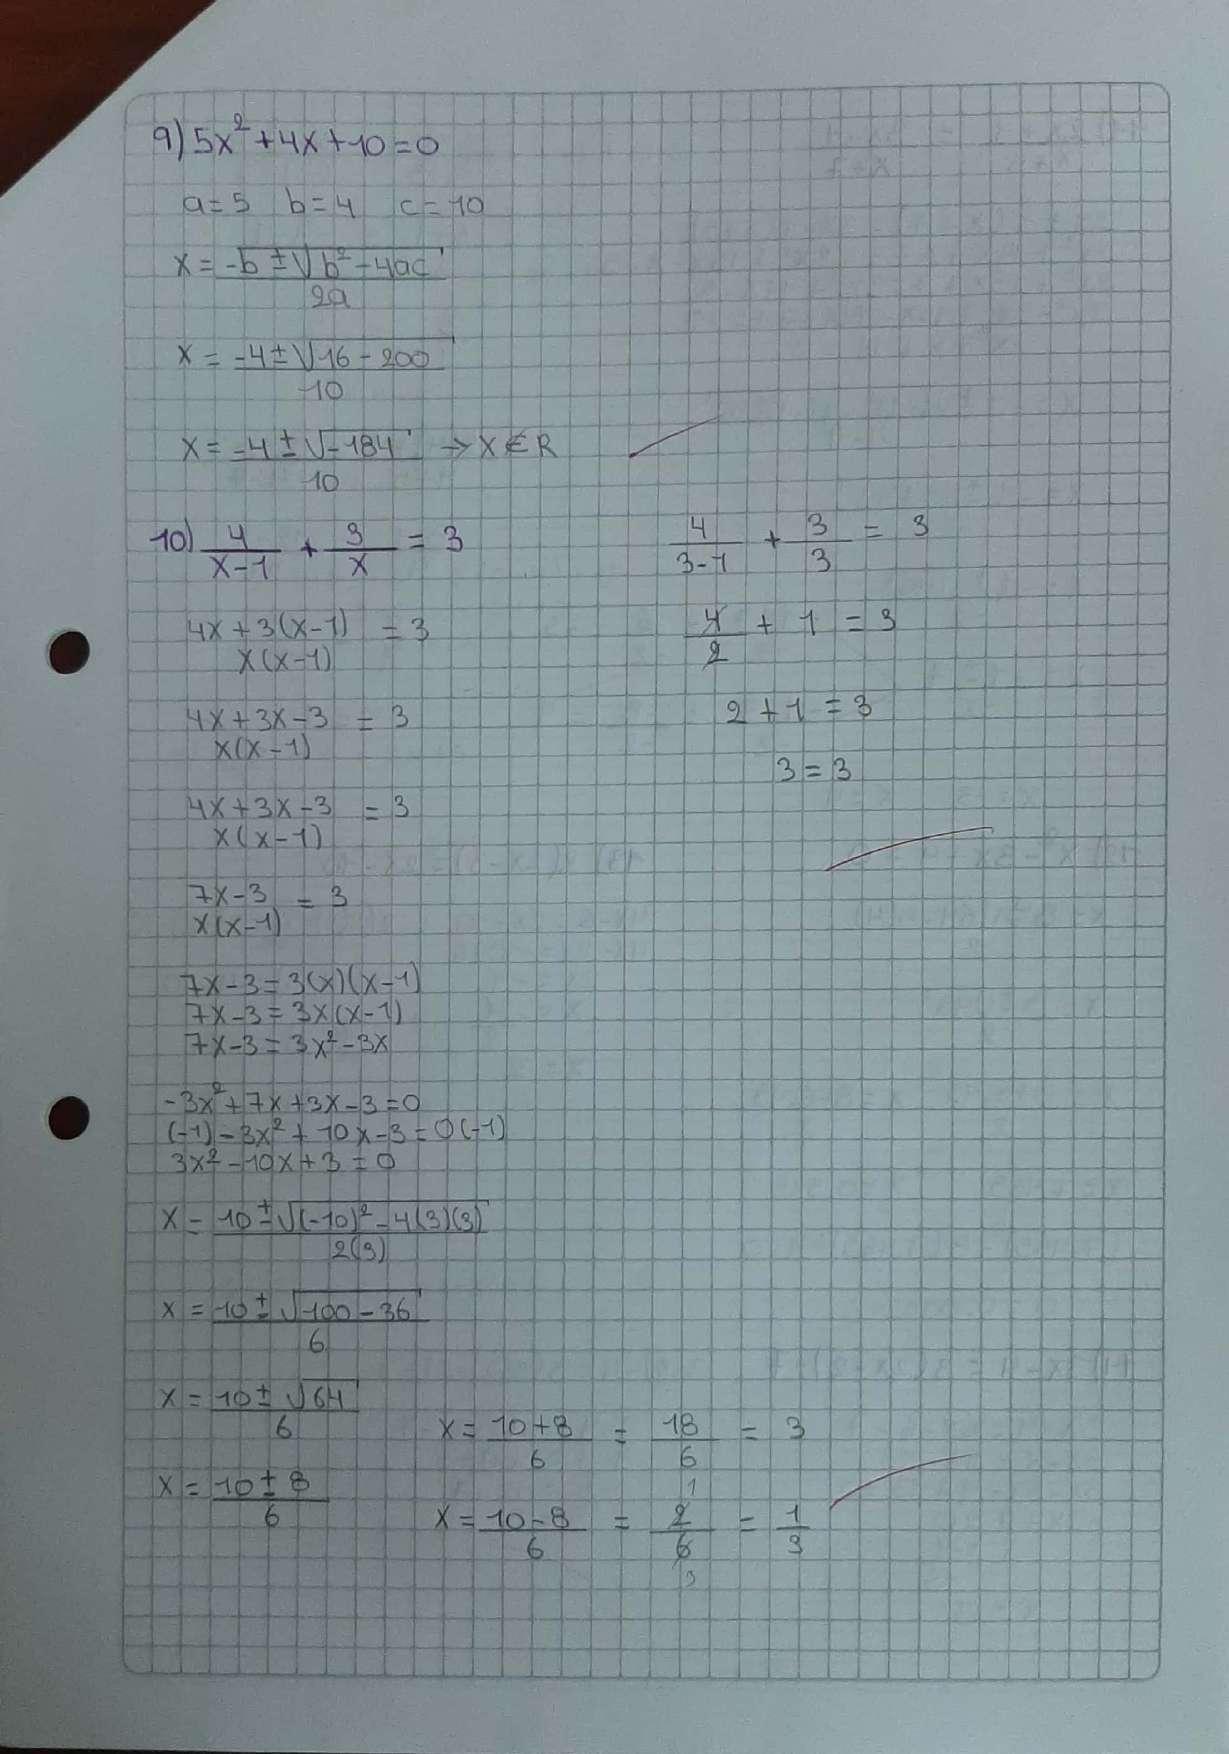 9) 5x² + 4x + 10 = 0
a = 5 b = 4 c = 10
x = -b ± √b² - 4ac / 2a
x = -4 ± √16 - 200 / 10
x = -4 ± √-184 / 10 → x ∉ R
10) 4/x-1 + 3/x = 3
4x + 3(x-1) / x(x-1) = 3
4x + 3x - 3 / x(x-1) = 3
4x + 3x - 3 / x(x-1) = 3
7x - 3 / x(x-1) = 3
7x - 3 = 3(x)(x-1)
7x - 3 = 3x(x-1)
7x - 3 = 3x² - 3x
-3x² + 7x + 3x - 3 = 0
(-1) - 3x² + 10x - 3 = 0(-1)
3x² - 10x + 3 = 0
x = 10 ± √(-10)² - 4(3)(3) / 2(3)
x = 10 ± √100 - 36 / 6
x = 10 ± √64 / 6
x = 10 ± 8 / 6
x = 10 + 8 / 6 = 18/6 = 3
x = 10 - 8 / 6 = 2/6 = 1/3
1
3
4/3-1 + 3/3 = 3
4/2 + 1 = 3
2 + 1 = 3
3 = 3